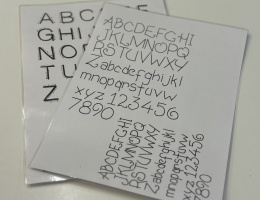 A B C
GHI
NO
T U
Z
ABCDEFGHI
JKLMNOPQ
RSTUVWXY
Zabcdefghijkl
mnopqrstuvw
xyz 123456
7890
ABCDEFGHI
JKLMNOPQ
RSTUVWXY
Zabcdefghijkl
mnopqrstuvw
xyz 123456
7890